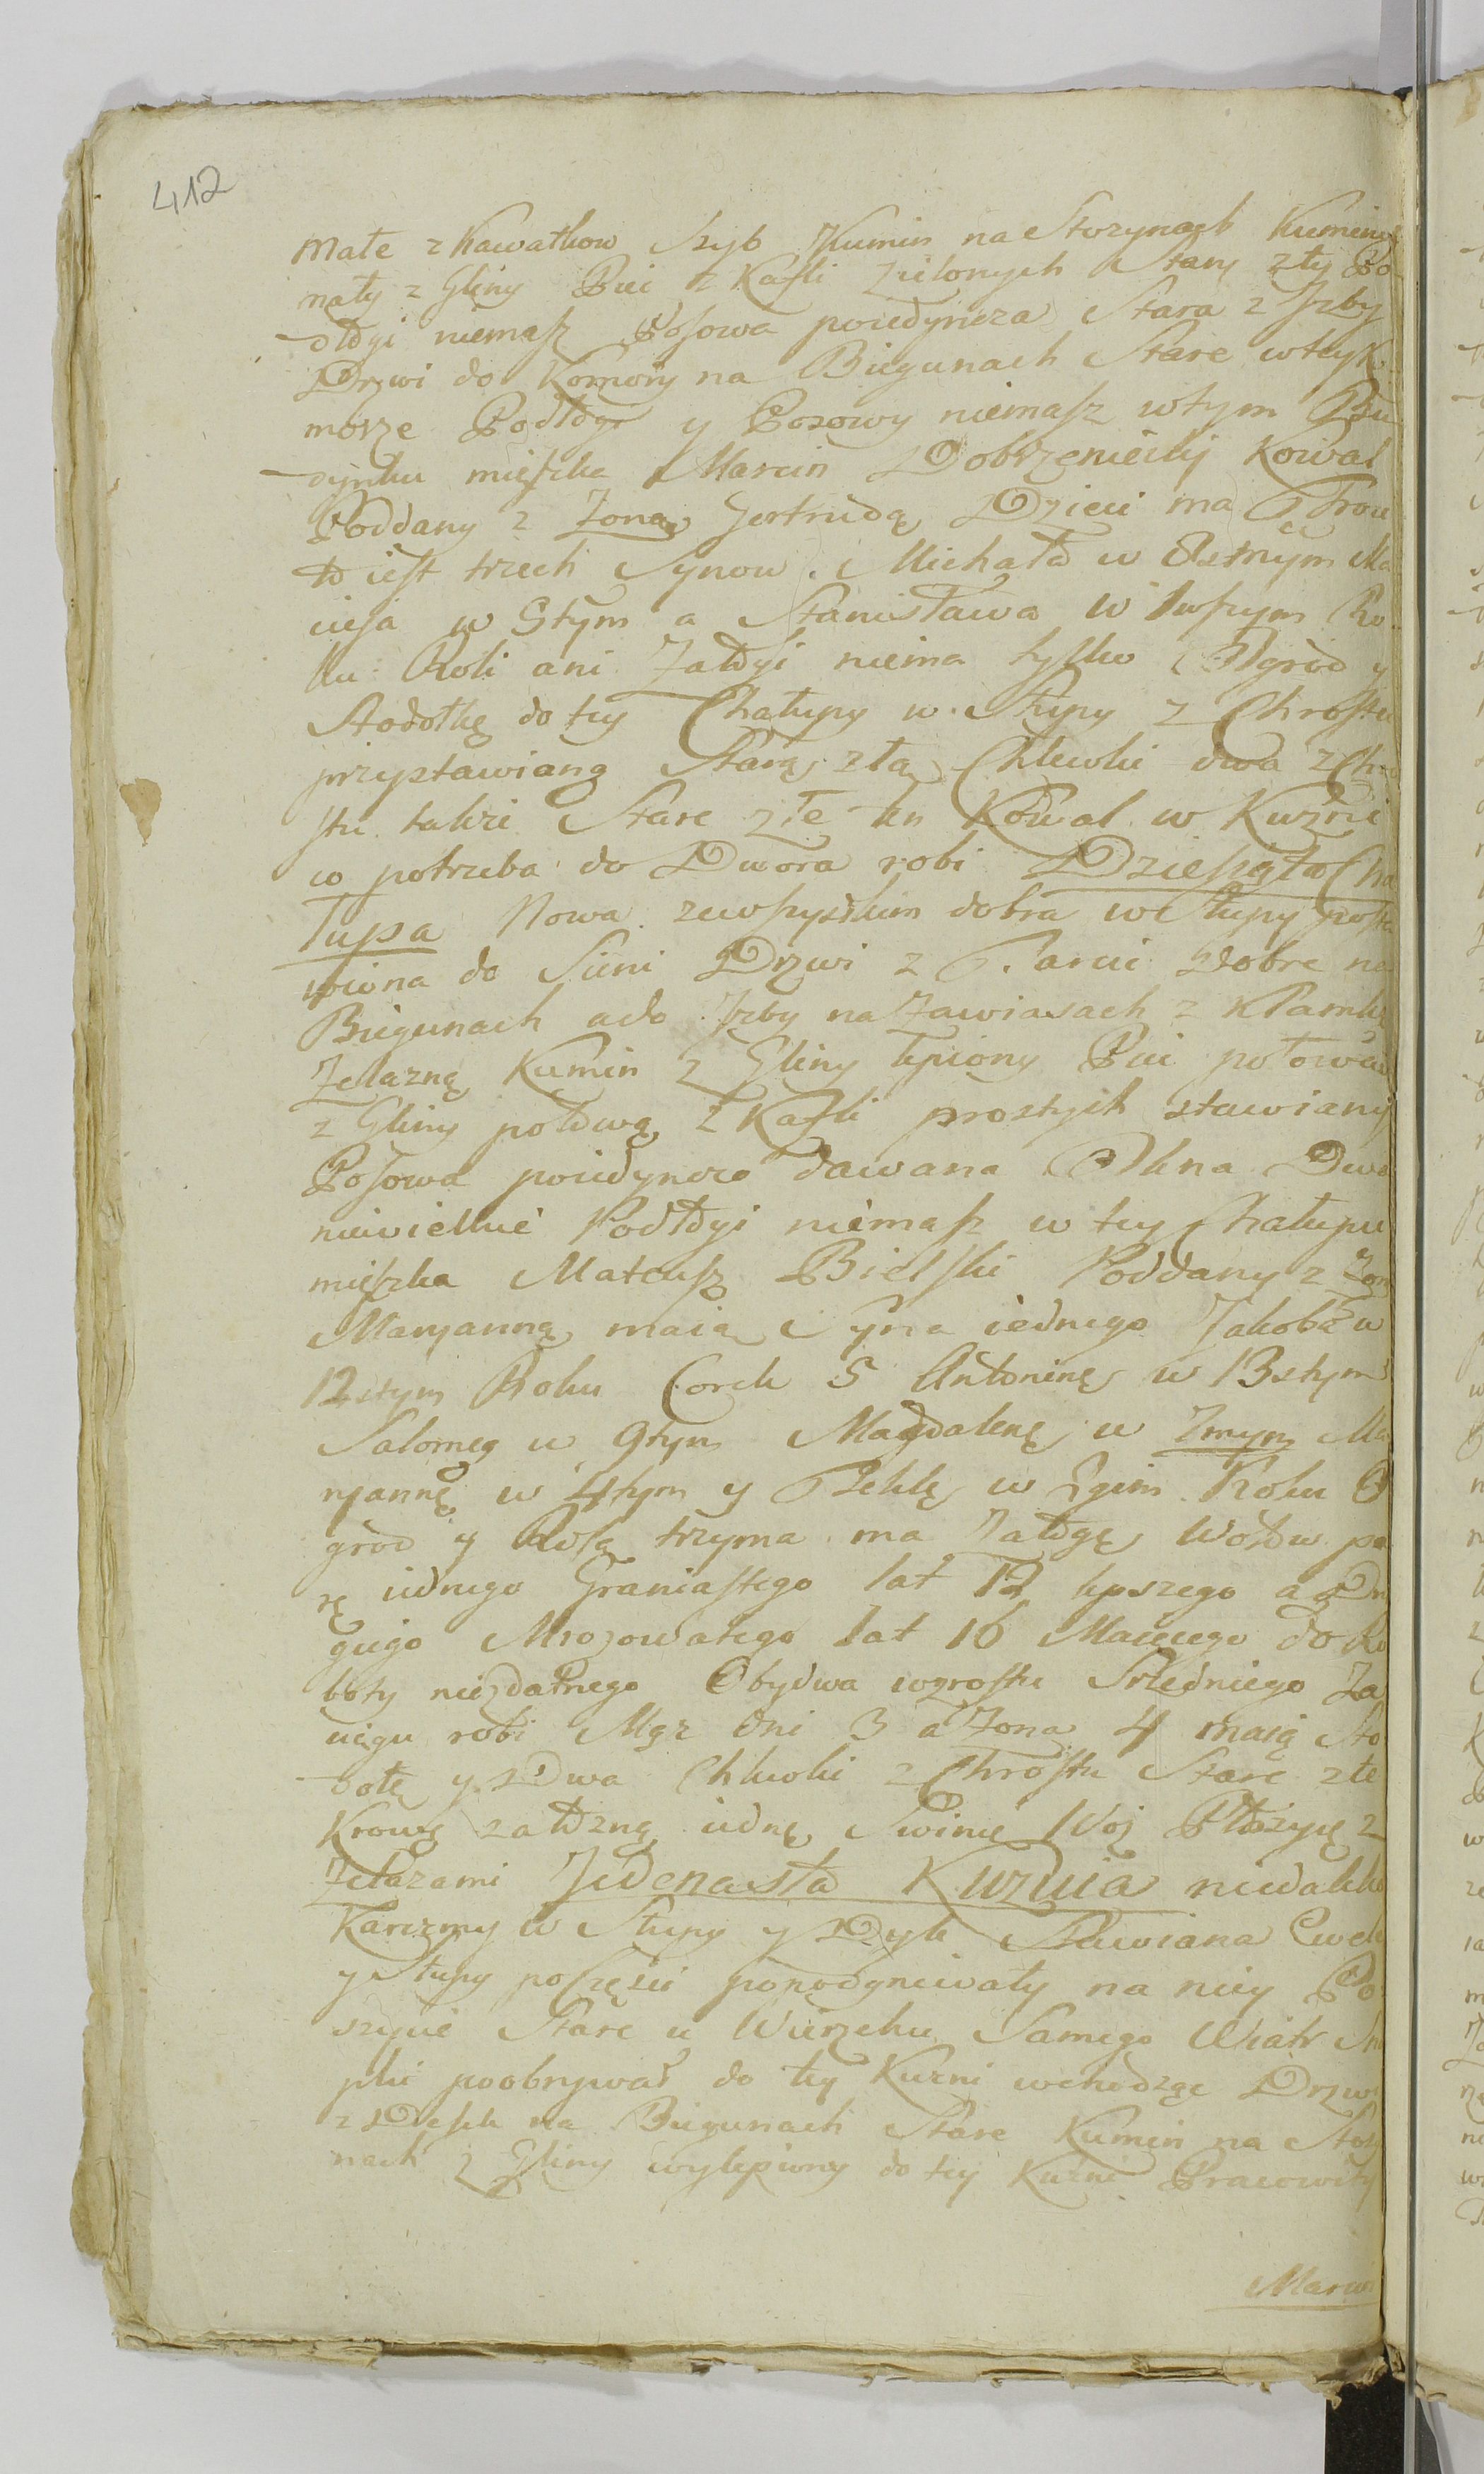 412
małe z kawałkow Szyb Kumin na Storynach Kuminy
nały z Gliny Piec z Kafli Zielonych Stary zły Po
dłogi niemasz Posowa poiedyncza Stara z Jzby
Drzwi do Komory na Biegunach Stare w tey K
morze Podłogi y Posowy niemasz w tym Bu
dynku mięszka Marcin Dobrzeniecky Kowal
Poddany z Zoną Jertrudą Dzieci ma Troie
to iest trzech Synow. Michała w Osmym Ma
cieja w 5tym a Stanisława w 1wszym Ro
ku Roli ani Załogi niema tylko Ogrod y
Stodołkę do tey Chałupy w Słupy z Chrostu
przystawianą Starą złą Chlewki dwa z Chro
stu także Stare złe ten Kowal w Kuzni
co potrzeba do Dwora robi Dziesiąta Cha
łupa Nowa zewszystkim dobra w Słupy posta
wiona do Sieni Drzwi z Tarcic Dobre na
Biegunach a do Jzby na Zawiasach z Klamką
Zelazną Kumin z Gliny lepiony Piec połowa
z Gliny połową z Kafli prostych stawiany
Posowa poiedynczo dawana Okna Dwa
niewielkie Podłogi niemasz w tey Chałupie
mięszka Mateusz Bielski Poddany z Zoną
Maryanną maią Syna iednego Jakoba w
12stym Roku Corek 5 Antoninę w 13stym
Salomeę w 9tym Magdalenę w 7mym Ma
ryannę w 4tym y Teklę w 2gim Roku O
grod y Rolą trzyma ma Załogę Wołow pa
rę iednego Graniastego lat 12 lepszego a Dru
giego Mrozowatego lat 16 Maiącego do Ro
boty niezdatnego Obydwa wzrostu Sredniego Za
ciągu robi Mąz dni 3 a Zona 4 maią Sto
dołę y Dwa Chlewki z Chrostu Stare złe
Krowę załozną iednę Swinię Woz Płozycę z
Zelazami Jedenasta Kuznia niedaleko
Karczmy w Słupy y Dyle Stawiana Cwele
y Słupy poczęsci popodgniwały na niey Po
szycie Stare u Wierzchu Samego Wiatr Sno
pki poobrywał do tey Kuzni wchodząc Drzwi
z Desek na Biegunach Stare Kumin na Stor
nach z Gliny wylepiony do tey Kuzni Pracowity
Marcin